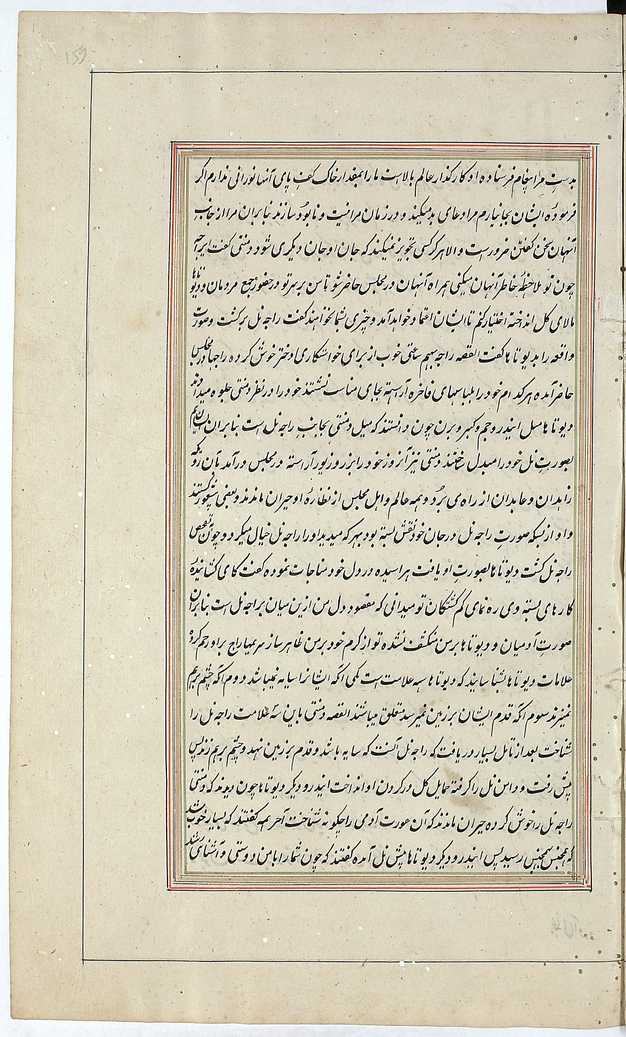 بدست مرا انجام فرستاده او کار گذار عالم بالاست ما را بمقدار خاک کف پای آنها نورانی ندارم اگر
فرموده ایشان بجا نیارم مرا دعای بد میکنند و در زمان مرا نیست و نابود سازند بنابران مرا از جانب
آنهان سخن گفتن ضرورست و الا هرگز کسی تجویز نمیکند که جان او جان دیگری شود دمنتی گفت ای راجه
چون تو ملاحظه خاطر آنهان میکنی همراه آنهان در مجلس حاضر شو تا من بر سر تو در حضور جمع مردمان و دیوتا
مالای گل انداخته اختیار کنم تا ایشان اعتماد خواهد آمد و چیزی بشما نخواهند گفت راجه نل برگشت و صورت
واقعه را بدیوتاها گفت القصه راجه بهیم ساعتی خوب از برای خواستگاری دختر خوش کرده راجها در مجلس
حاضر آمده هر کدام خود را بلباسهای فاخره آراسته بجای مناسب نشستند خود را در نظر دمنتی جلوه میدادند
دیوتاها مثل ایندر و جم و کبیر و برن چون دانستند که میل دمنتی بجانب راجه نل است بنابران ایشان
بصورت نل خود را مبدل ساختند دمنتی نیز آنروز خود را بزر و زیور آراسته در مجلس درآمد بآن رویکه
زاهدان و عابدان از راه می برد و همه عالم و اهل مجلس از نظاره او حیران ماندند و بعضی بیهوش گشتند
و او از بسکه صورت راجه نل در جان خود نقش بسته بود بهر که میدید او را راجه نل خیال میکرد و چون تفحص
راجه نل گشت دیوتاها بصورت او یافت هراسیده در دل خود مناجات نموده گفت که ای گشاینده
کارهای بسته و ی ره نمای گم گشتگان تو میدانی که مقصود دل من ازین میان راجه نل است بنابران
صورت آدمیان و دیوتاها بر من منکشف نشده تو از کرم خود بر من ظاهر ساز سریمهاراج برو رحم کرده
علامات دیوتاها بشناسانید که دیوتاها سه علامت است یکی آنکه ایشانرا سایه نمیباشد دوم آنکه چشم بر هم
نمیزنند سوم آنکه قدم ایشان بر زمین نمیرسد متعلق میباشند القصه دمنتی باین سه علامت راجه نل را
شناخت بعد از تامل بسیار دریافت که راجه نل آنست که سایه باشد و قدم بر زمین نهد و چشم بر هم زند پس
پیش رفت و دامن نل را گرفته حمایل گل در گردن او انداخت ایندر و دیگر دیوتاها چون دیدند که دمنتی
راجه نل را خوش کرده حیران ماندند که آن عورت آدمی را چگونه شناخت آخر همه گفتند که بسیار خوب شد
که همجنس بهمجنس رسید پس ایندر و دیگر دیوتاها پیش نل آمده گفتند که چون شما را با من دوستی و آشنائی شد